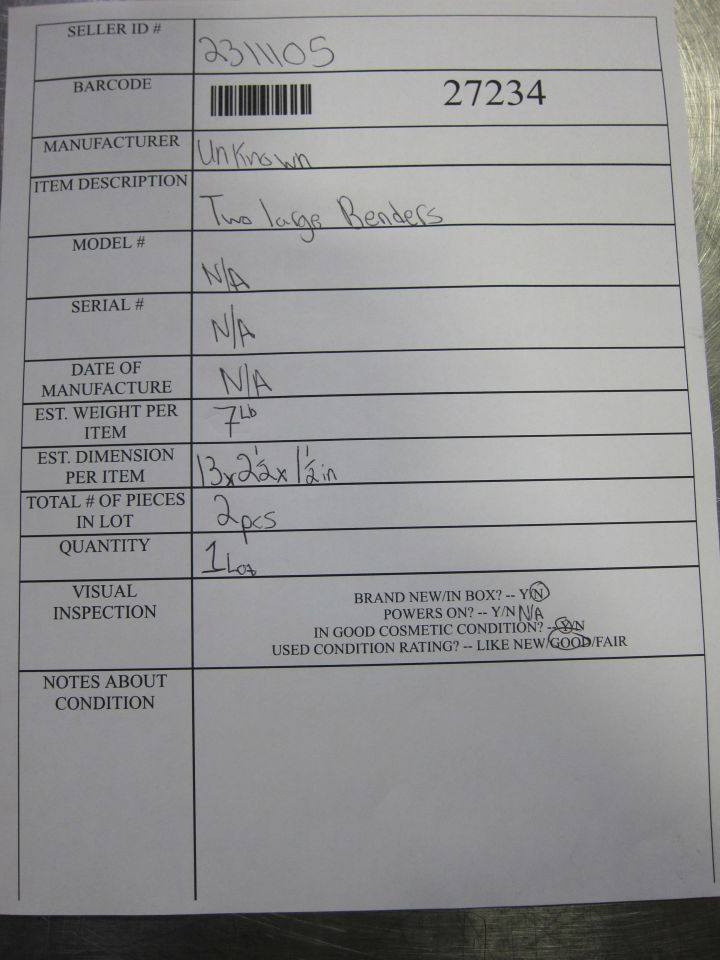 SELLER ID # 2311105
BARCODE 27234
MANUFACTURER Unknown
ITEM DESCRIPTION Two large Benders
MODEL # N/A
SERIAL # N/A
DATE OF
MANUFACTURE N/A
EST. WEIGHT PER
ITEM 7 Lb
EST. DIMENSION
PER ITEM 13x2 1/2x 1 1/2 in
TOTAL # OF PIECES
IN LOT 2 pcs
QUANTITY 1 Lot
VISUAL
INSPECTION
BRAND NEW/IN BOX? -- Y/N
POWERS ON? -- Y/N N/A
IN GOOD COSMETIC CONDITION? -- Y/N
USED CONDITION RATING? -- LIKE NEW/GOOD/FAIR
NOTES ABOUT
CONDITION